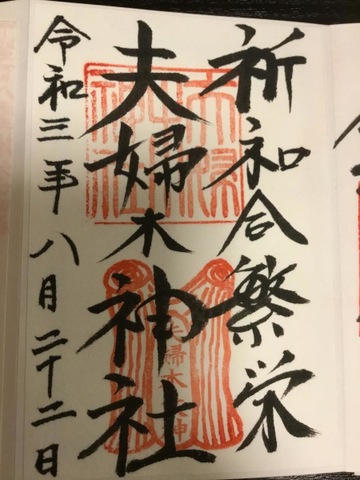 祈和合繁栄
夫婦木神社
令和三年八月二十二日